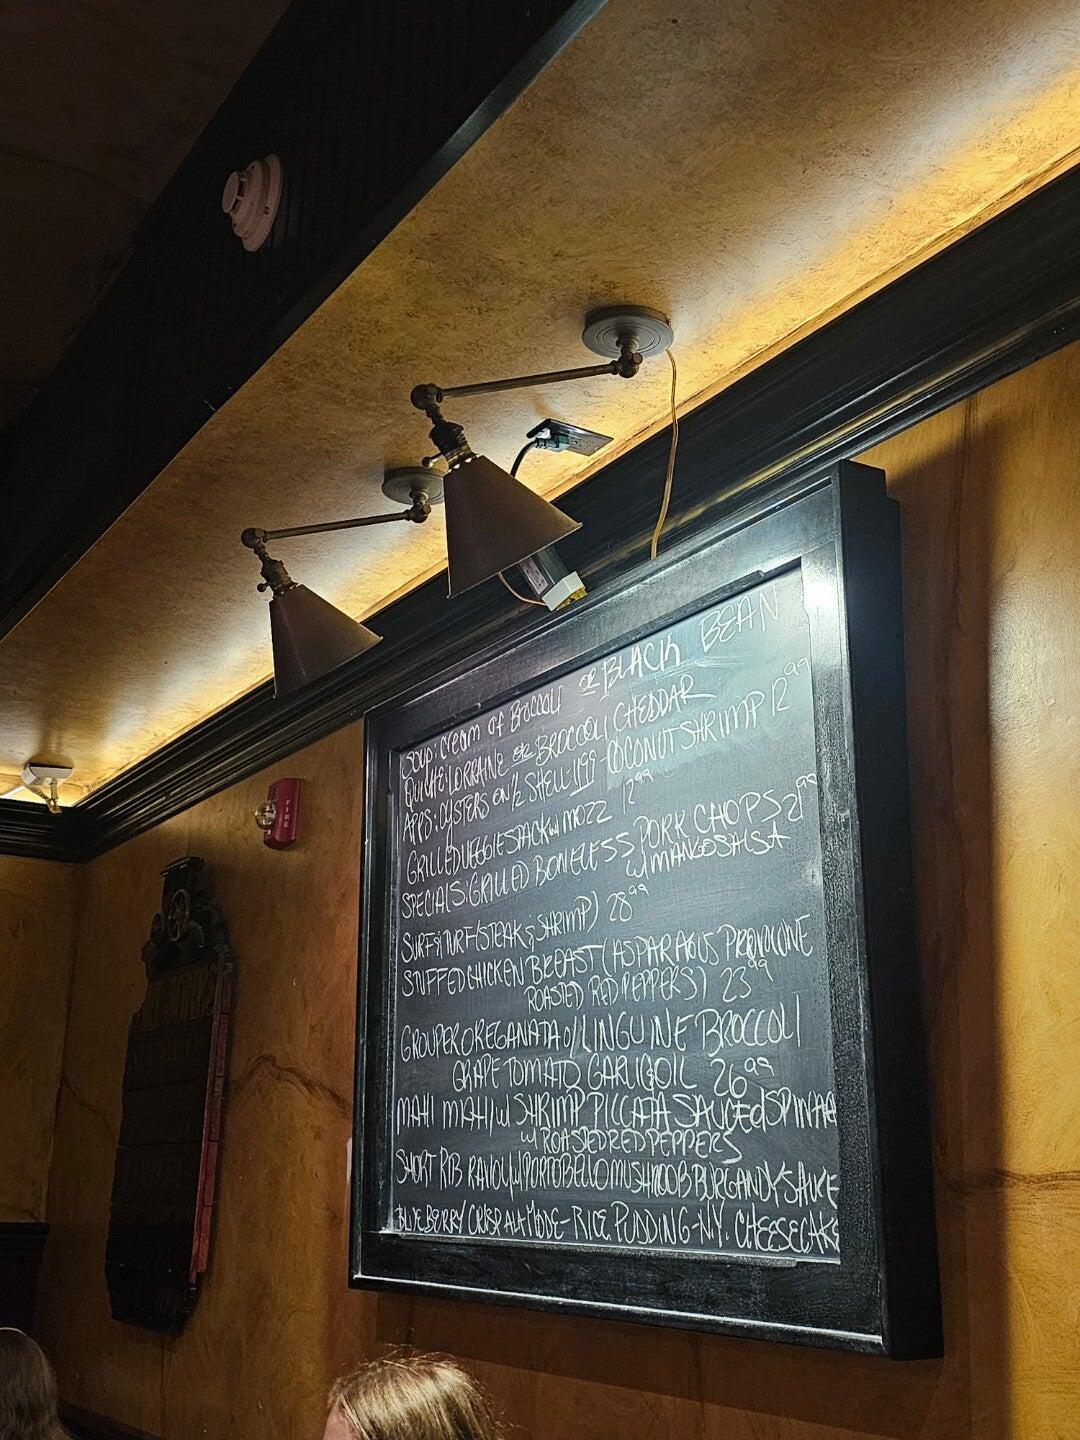 SOUP: CREAM OF BROCCOLI OR BLACK BEAN
QUICHE: LORRAINE OR BROCCOLI CHEDDAR
APPS: OYSTERS ON ½ SHELL-11⁹⁹-COCONUT SHRIMP 12⁹⁹
GRILLED VEGGIE STACK W/ MOZZ 12⁹⁹
SPECIALS: GRILLED BONELESS PORK CHOPS 21⁹⁹
W/ MANGO SALSA
SURF & TURF (STEAK & SHRIMP) 28⁹⁹
STUFFED CHICKEN BREAST (ASPARAGUS PROVOLONE
ROASTED RED PEPPERS) 23⁹⁹
GROUPER OREGANATA O/ LINGUINE BROCCOLI
GRAPE TOMATO GARLIC & OIL 26⁹⁹
MAHI MAHI W/ SHRIMP PICCATA SAUCE
W/ ROASTED RED PEPPERS
SHORT RIB RAVIOLI W/ PORTOBELLO MUSHROOM BURGANDY SAUCE
BLUEBERRY CRISP ALA MODE - RICE PUDDING - N.Y. CHEESECAKE
FIRE